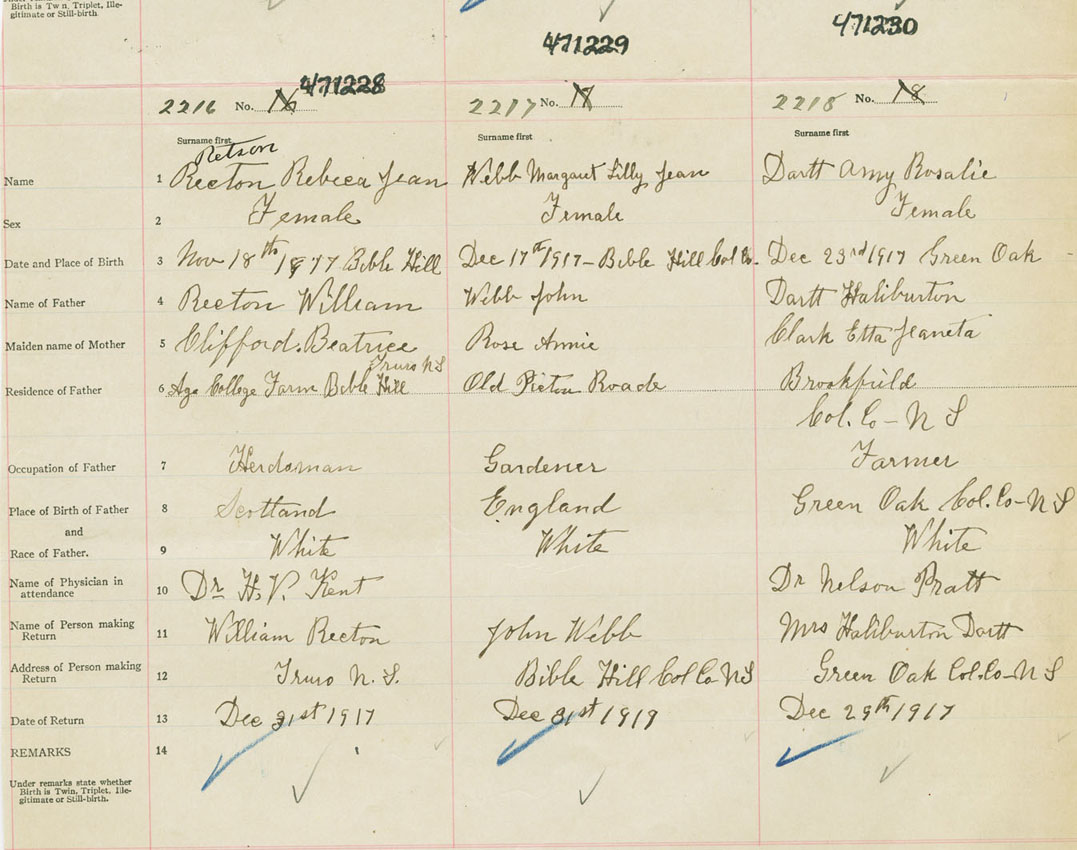 Birth is Twin, Triplet, Ille-
gitimate or Still-birth.
471228 471229 471230
2216 No. 16 2217 No. 17 2218 No. 18
Surname first Surname first Surname first
Retson
Name 1 Recton Rebecca Jean Webb Margaret Lilly Jean Dartt Amy Rosalie
Sex 2 Female Female Female
Date and Place of Birth 3 Nov 18th 1917 Bible Hill Dec 17th 1917 - Bible Hill Col Co. Dec 23rd 1917 Green Oak -
Name of Father 4 Recton William Webb John Dartt Haliburton
Maiden name of Mother 5 Clifford. Beatrice Rose Annie Clark Etta Jeaneta
Truro NS
Residence of Father 6 Age College Farm Bible Hill Old Pictou Roade Brookfield
Col. Co - N S
Occupation of Father 7 Herdsman Gardener Farmer
Place of Birth of Father 8 Scottand England Green Oak Col. Co - N S
and
Race of Father. 9 White White White
Name of Physician in
attendance 10 Dr H. V. Kent Dr Nelson Pratt
Name of Person making
Return 11 William Recton John Webb Mrs Haliburton Dartt
Address of Person making
Return 12 Truro N. S. Bible Hill Col Co NS Green Oak Col. Co - N S
Date of Return 13 Dec 31st 1917 Dec 31st 1919 Dec 29th 1917
REMARKS 14
Under remarks state whether
Birth is Twin, Triplet, Ille-
gitimate or Still-birth.